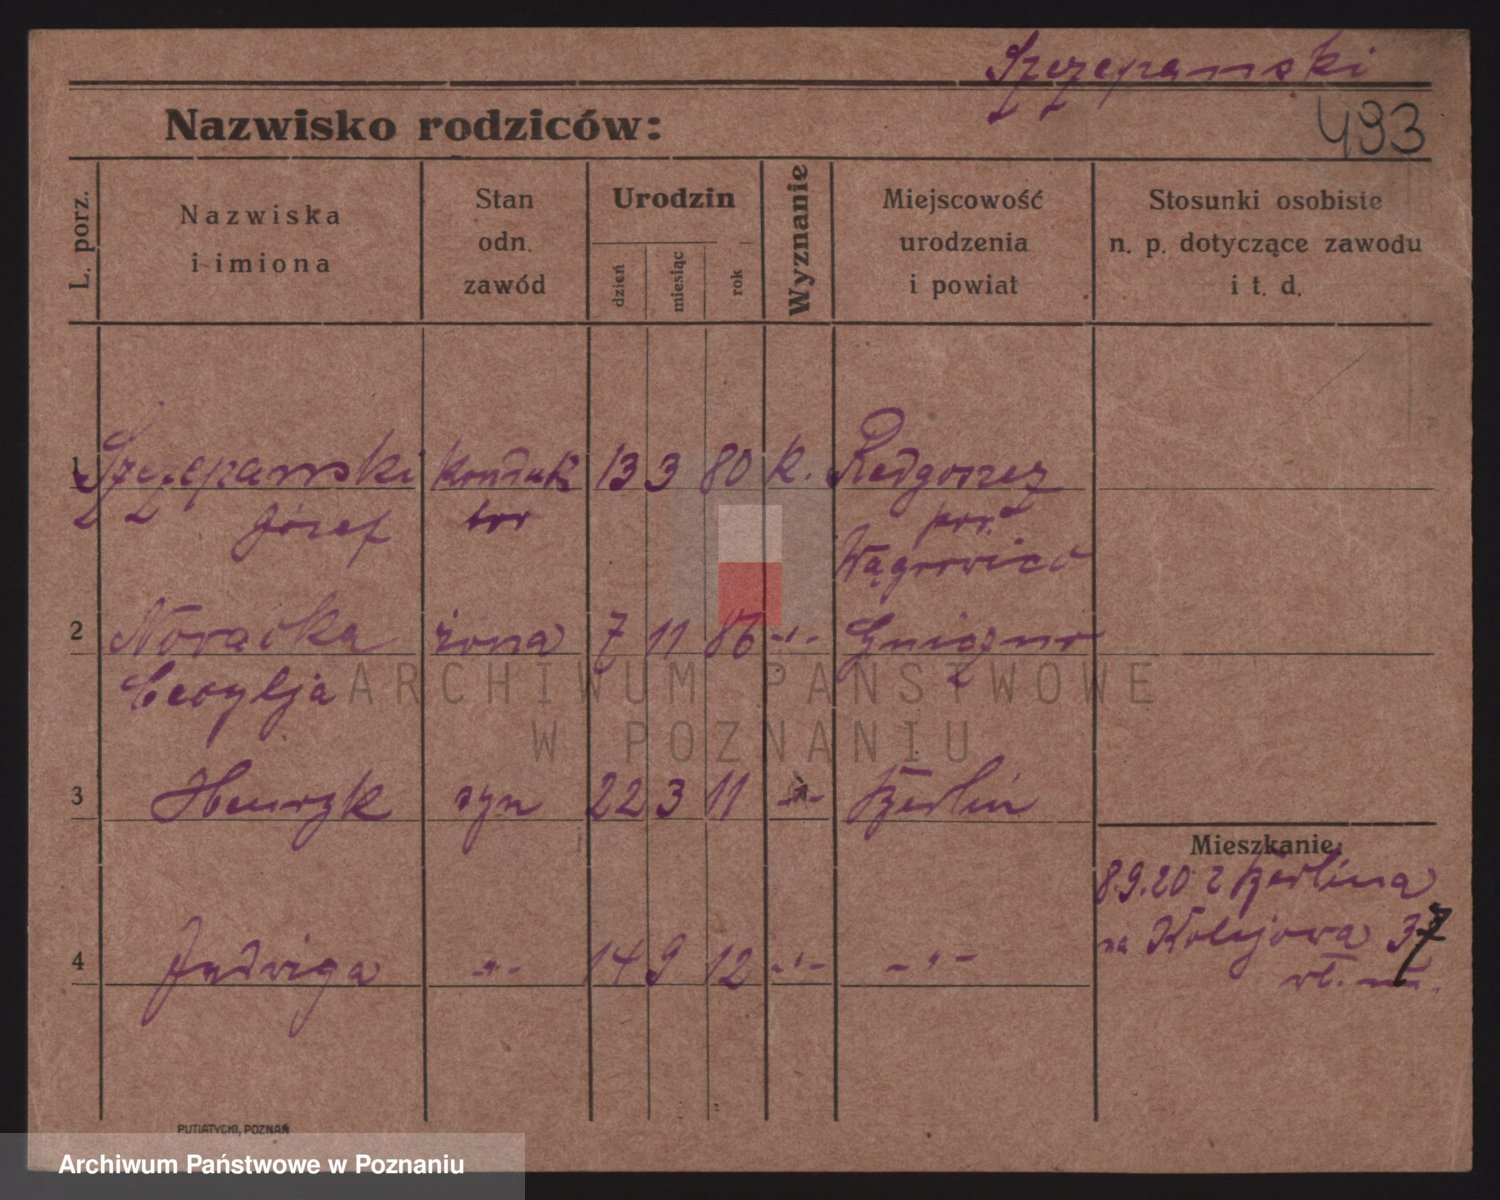 Szczepanski
Nazwisko rodziców:
493
L. porz.
Nazwiska
i imiona
Stan
odn.
zawód
Urodzin
dzień
miesiąc
rok
Wyznanie
Miejscowość
urodzenia
i powiat
Stosunki osobiste
n. p. dotyczące zawodu
i t. d.
1 Szczepanski konduk 13 3 80 k. Redgoszcz
Józef tor pow.
Wągrowiec
2 Nowacka żona 7 11 86 -"- Gniezno
Cecylja
3 Henryk syn 22 3 11 -"- Berlin
Mieszkanie:
8.9.20 z Berlina
na Kolejowa 37
4 Jadwiga -"- 14 9 12 -"- -"-
PUTIATYCKI, POZNAŃ
ARCHIWUM PAŃSTWOWE
W POZNANIU
Archiwum Państwowe w Poznaniu